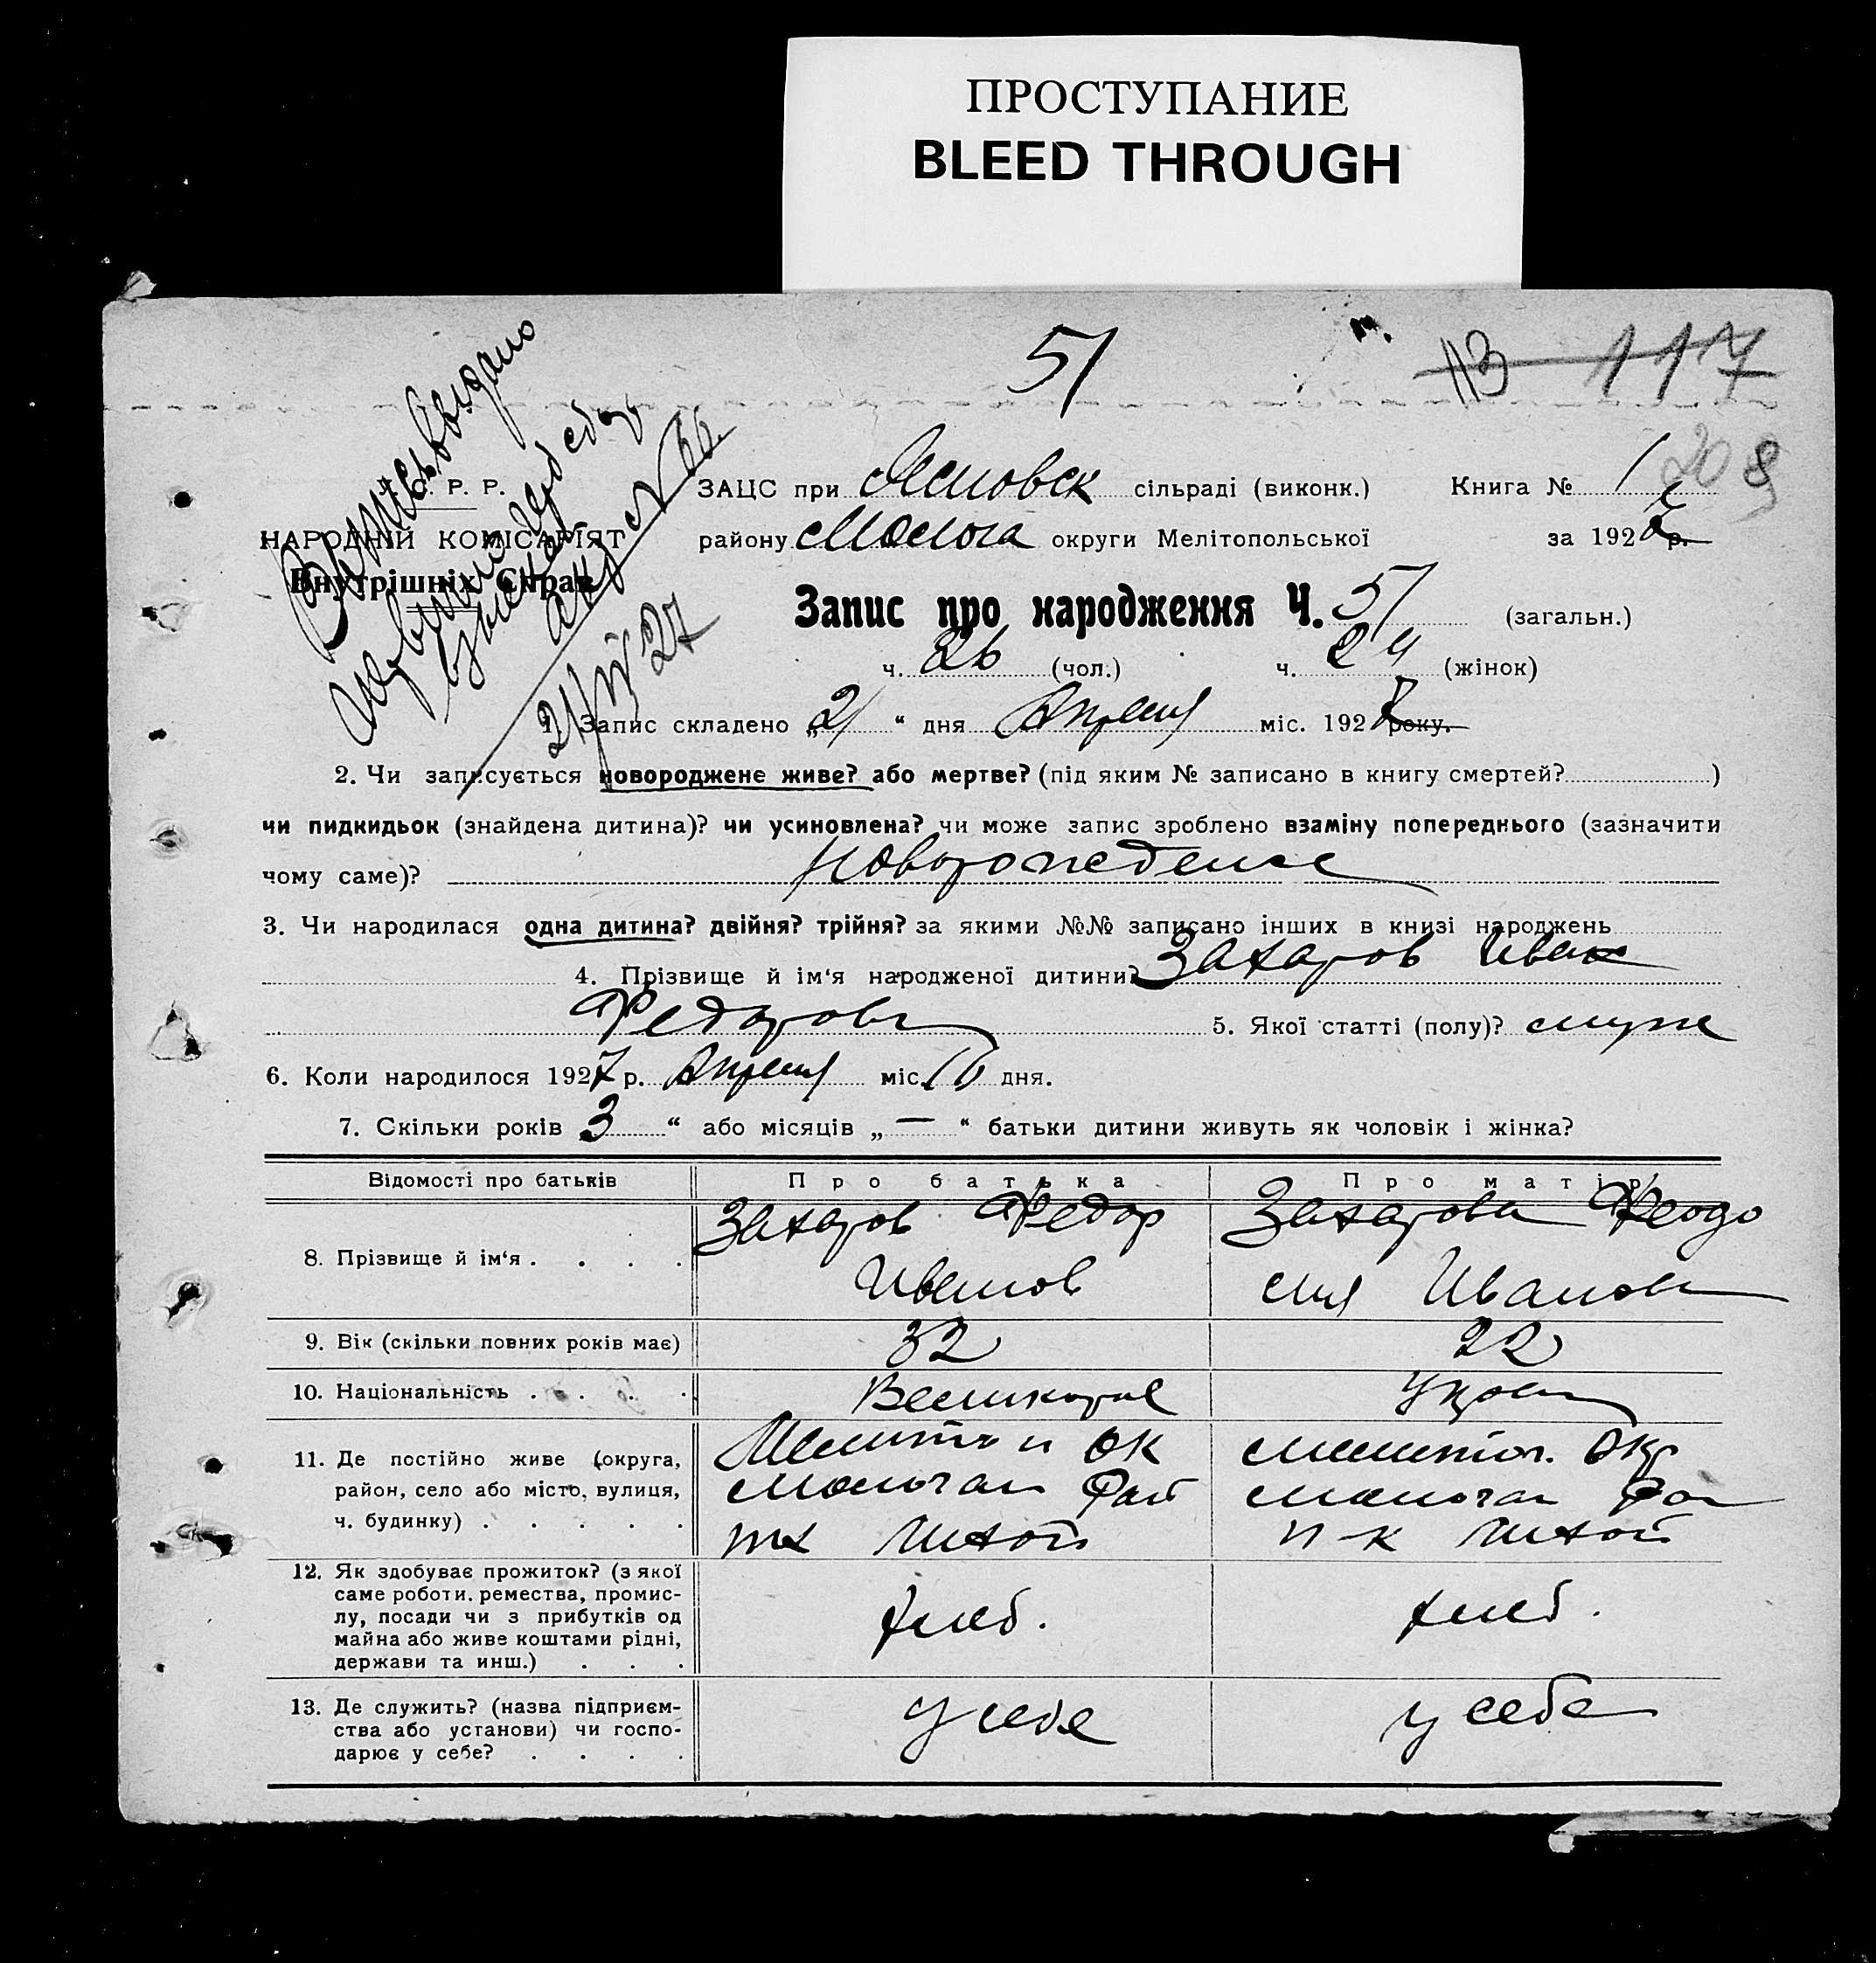 ПРОСТУПАНИЕ
BLEED THROUGH
51
113 117
208
С. Р. Р.
НАРОДНІЙ КОМІСАРІЯТ
Внутрішніх Справ
21/IV 27
ЗАЦС при сільраді (виконк.) Книга № 1
району Молога округи Мелітопольської за 1927 р.
Запис про народження Ч. 51 (загальн.)
ч. 26 (чол.) ч. (жінок)
1. Запис складено „21“ дня Апреля міс. 1927 року.
2. Чи записується новороджене живе? або мертве? (під яким № записано в книгу смертей? )
чи пидкидьок (знайдена дитина)? чи усиновлена? чи може запис зроблено взаміну попереднього (зазначити
чому саме)? новорожедение
3. Чи народилася одна дитина? двійня? трійня? за якими №№ записано інших в книзі народжень
4. Прізвище й ім‘я народженої дитини? Захаров Иван
Федоров 5. Якої статті (полу)? муже
6. Коли народилося 1927 р. Апреля міс. дня.
7. Скільки років „3“ або місяців „—“ батьки дитини живуть як чоловік і жінка?
Відомості про батьків Про батька Про матір
8. Прізвище й ім‘я . . . . Захаров Федор Захарова Феодо
Иванов сия Иванов
9. Вік (скільки повних років має) 32 22
10. Національність . . . . Великорос Украин
11. Де постійно живе (округа, район, село або місто, вулиця, ч. будинку) . . . . .
Мелитоп ОК Мелитоп. Окр
Молочан Рай Молочан Рай
12. Як здобуває прожиток? (з якої
саме роботи, ремества, промис-
лу, посади чи з прибутків од
майна або живе коштами рідні,
держави та инш.) . . .
хлеб. хлеб.
13. Де служить? (назва підприєм-
ства або установи) чи госпо-
дарює у себе? . . . .
у себе у себе